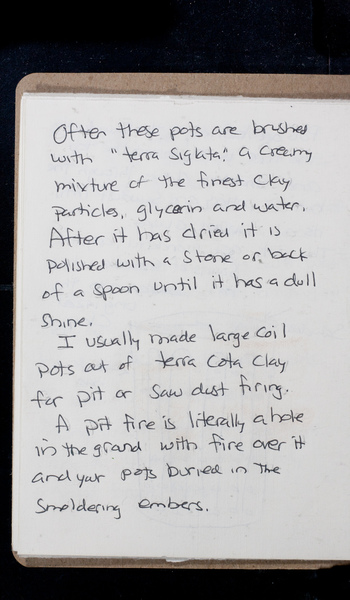 Often these pots are brushed
with "terra Sigilata." a creamy
mixture of the finest clay
particles, glycerin and water.
After it has dried it is
polished with a stone or back
of a spoon until it has a dull
shine.
I usually made large coil
pots out of terra cota clay
for pit or saw dust firing.
A pit fire is literally a hole
in the ground with fire over it
and your pots buried in the
smoldering embers.